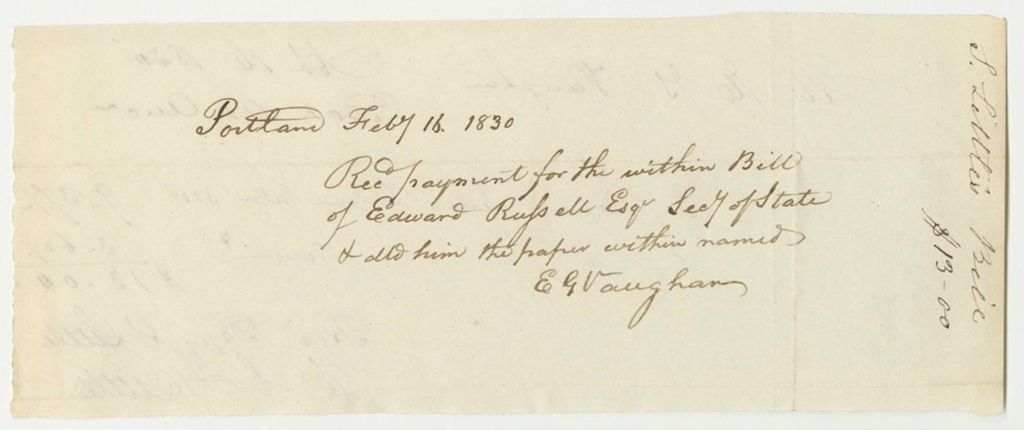 Portland Feby 16. 1830
Recd payment for the within Bill
of Edward Russell Esqr Secy of State
& dld him the paper within named
E G Vaughan
S. Little's Bill
$13-00